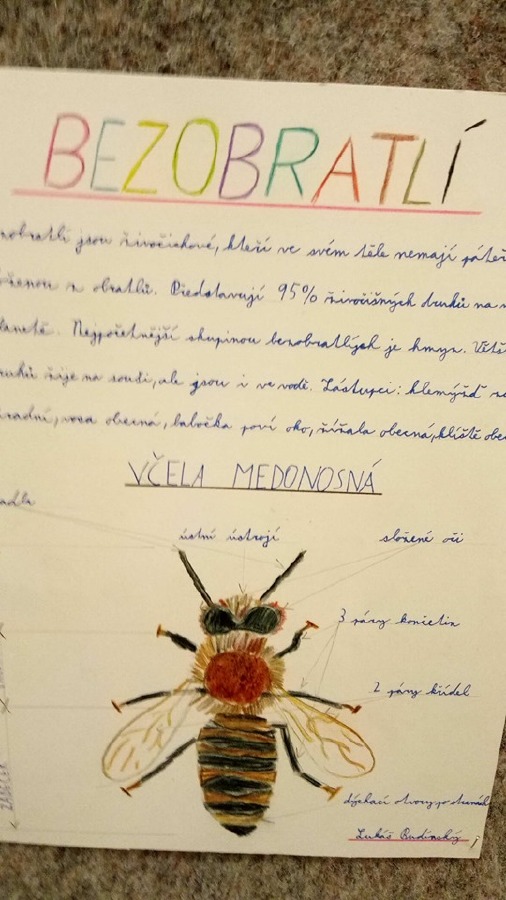 BEZOBRATLÍ
zobratlí jsou živočichové, kteří ve svém těle nemají páteř
oženou z obratlů. Představují 95% živočišných druhů na
lanetě. Nejpočetnější skupinou bezobratlých je hmyz. Větš
ruhů žije na souši, ale jsou i ve vodě. Zástupci: hlemýžď za
hradní, vosa obecná, babočka paví oko, žížala obecná, klíště obec
VČELA MEDONOSNÁ
adla
ústní ústrojí
složené oči
3 páry končetin
2 páry křídel
dýchací otvory
Lukáš